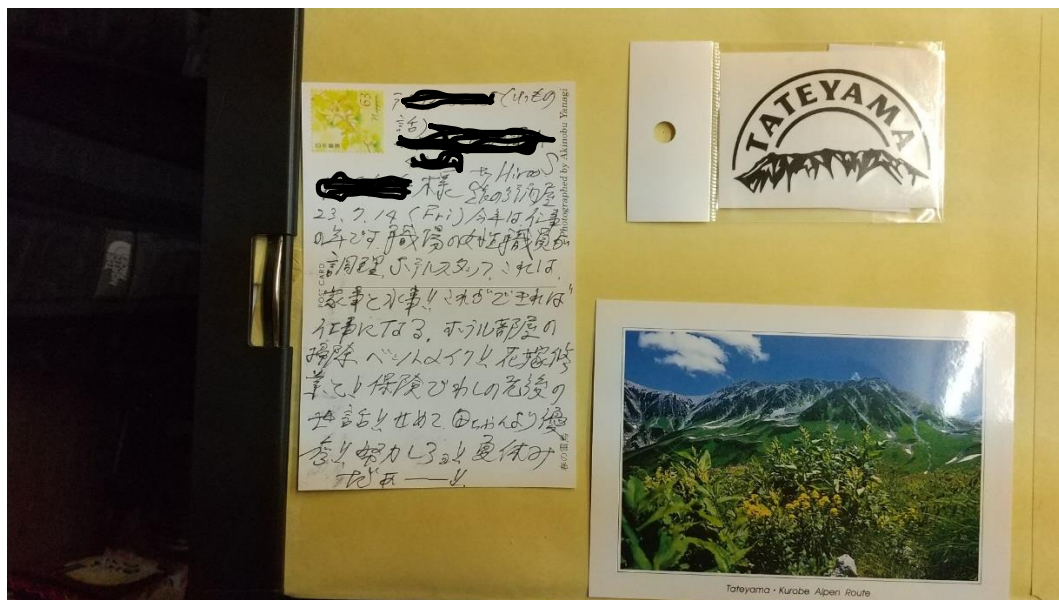 63
日本郵便
話)
様 Hiroo S
23.7.14 (Fri) 今年は仕事
の年です 職場の女性職員が
調理、ホテルスタッフ、これは、
家事と水事!! これができれば
仕事になる、ホテル部屋の
掃除 ベットメイク!! 花嫁修
業と!! 保険でわしの老後の
世話!! せめて 母ちゃんより優
秀!! 努力しろョ!! 夏休み
だぁー!!
POST CARD
Photographed by Akinobu Yanagi
春の雷鳥
TATEYAMA
Tateyama・Kurobe Alpen Route